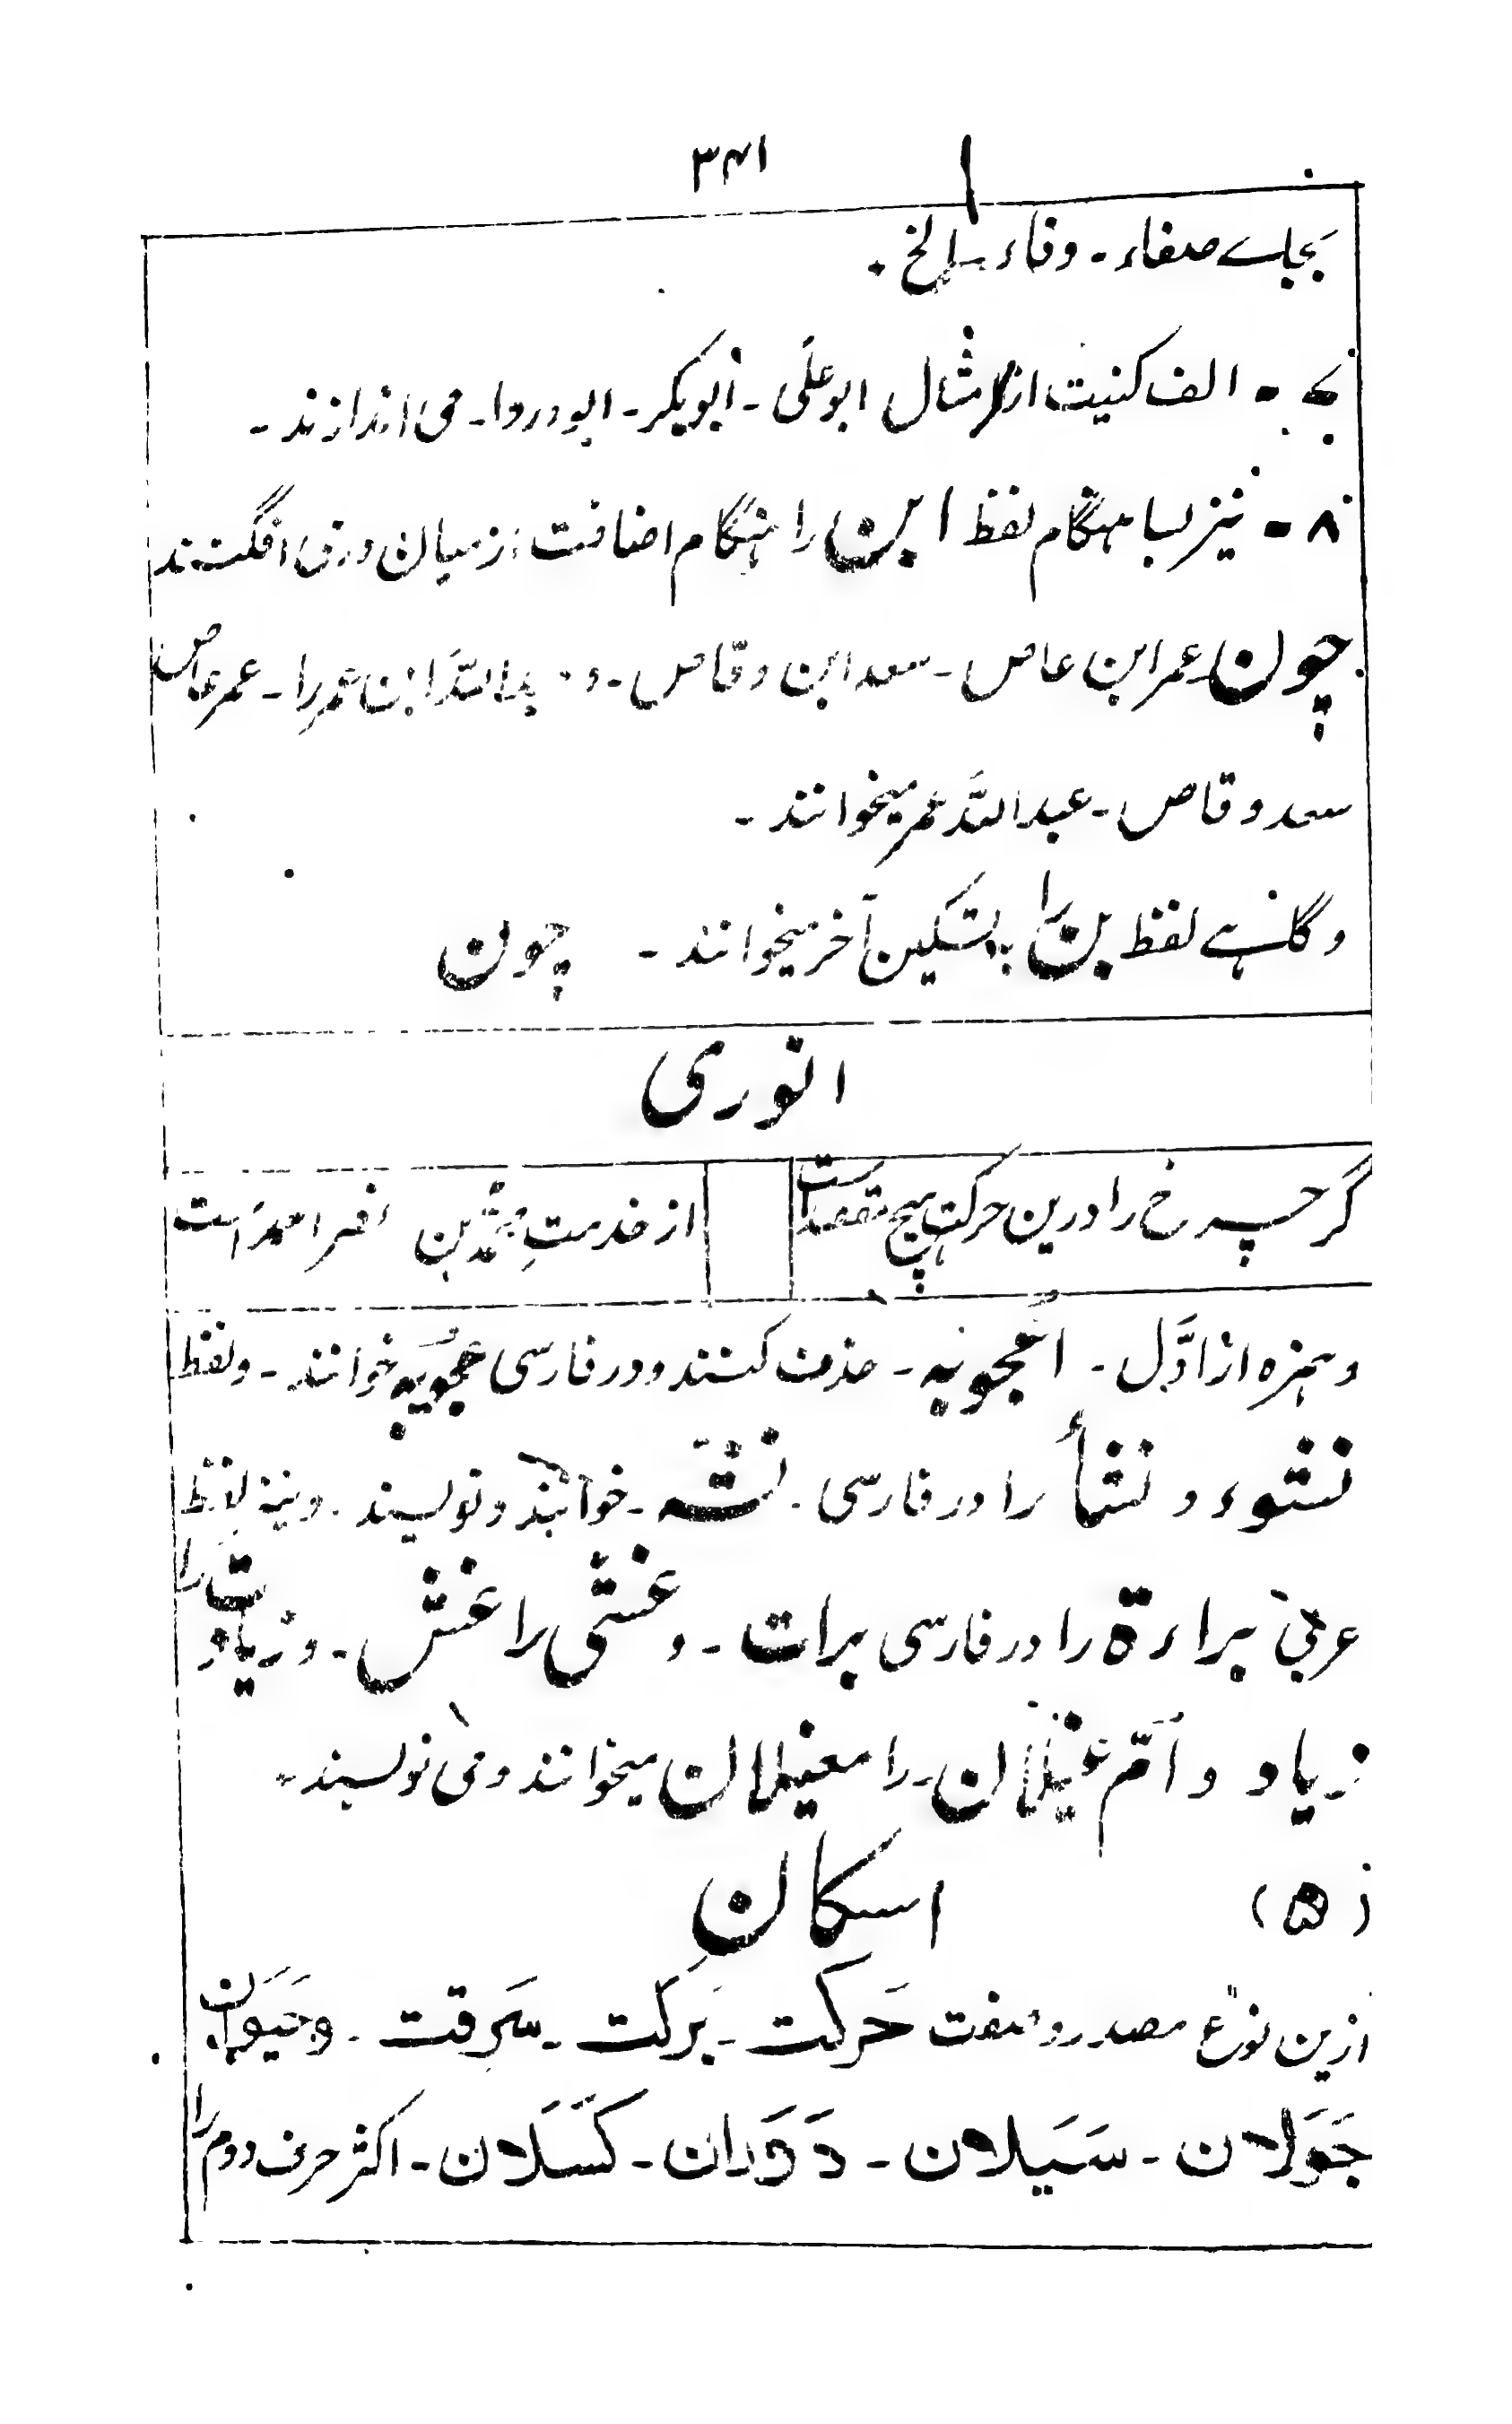 ۳۴۱
بجاے صفاء - وفاء - الخ
۷ - الف کنیت از امثال ابوعلی - ابوبکر - ابودردا - می اندازند -
۸ - نیز بسا هنگام لفظ ابن را هنگام اضافت از میان درمی افگنند
چون عمر ابن عاص - سعد ابن وقاص - و عبداللہ ابن عمر را - عمر عاص
سعد وقاص - عبداللہ عمر میخوانند -
و گاہے لفظ بن را بہ تسکین آخر میخوانند - چون
انوری
گر چرخ را درین حرکت ہیچ مقصد است
از خدمت محمد بن نصر احمد است
و ہمزہ از اوّل - اُعجوبہ - حذف کنند و در فارسی عجوبہ خوانند - و لفظ
نشوء و نشأ را در فارسی - نشہ - خوانند و نویسند - و نیز لفظ
عربی براءة را در فارسی برات - و غشی را غش - و زیادت را
زیاد و اُمّ غیلان - را مغیلان میخوانند و می نویسند -
(۵) اسکان
ازین نوع مصدر و صفت حَرکت - بَرکت - سَرقت - و حَیَوان
جَوَلان - سَیَلان - دَوَران - کَسَلان - اکثر حرف دوم را